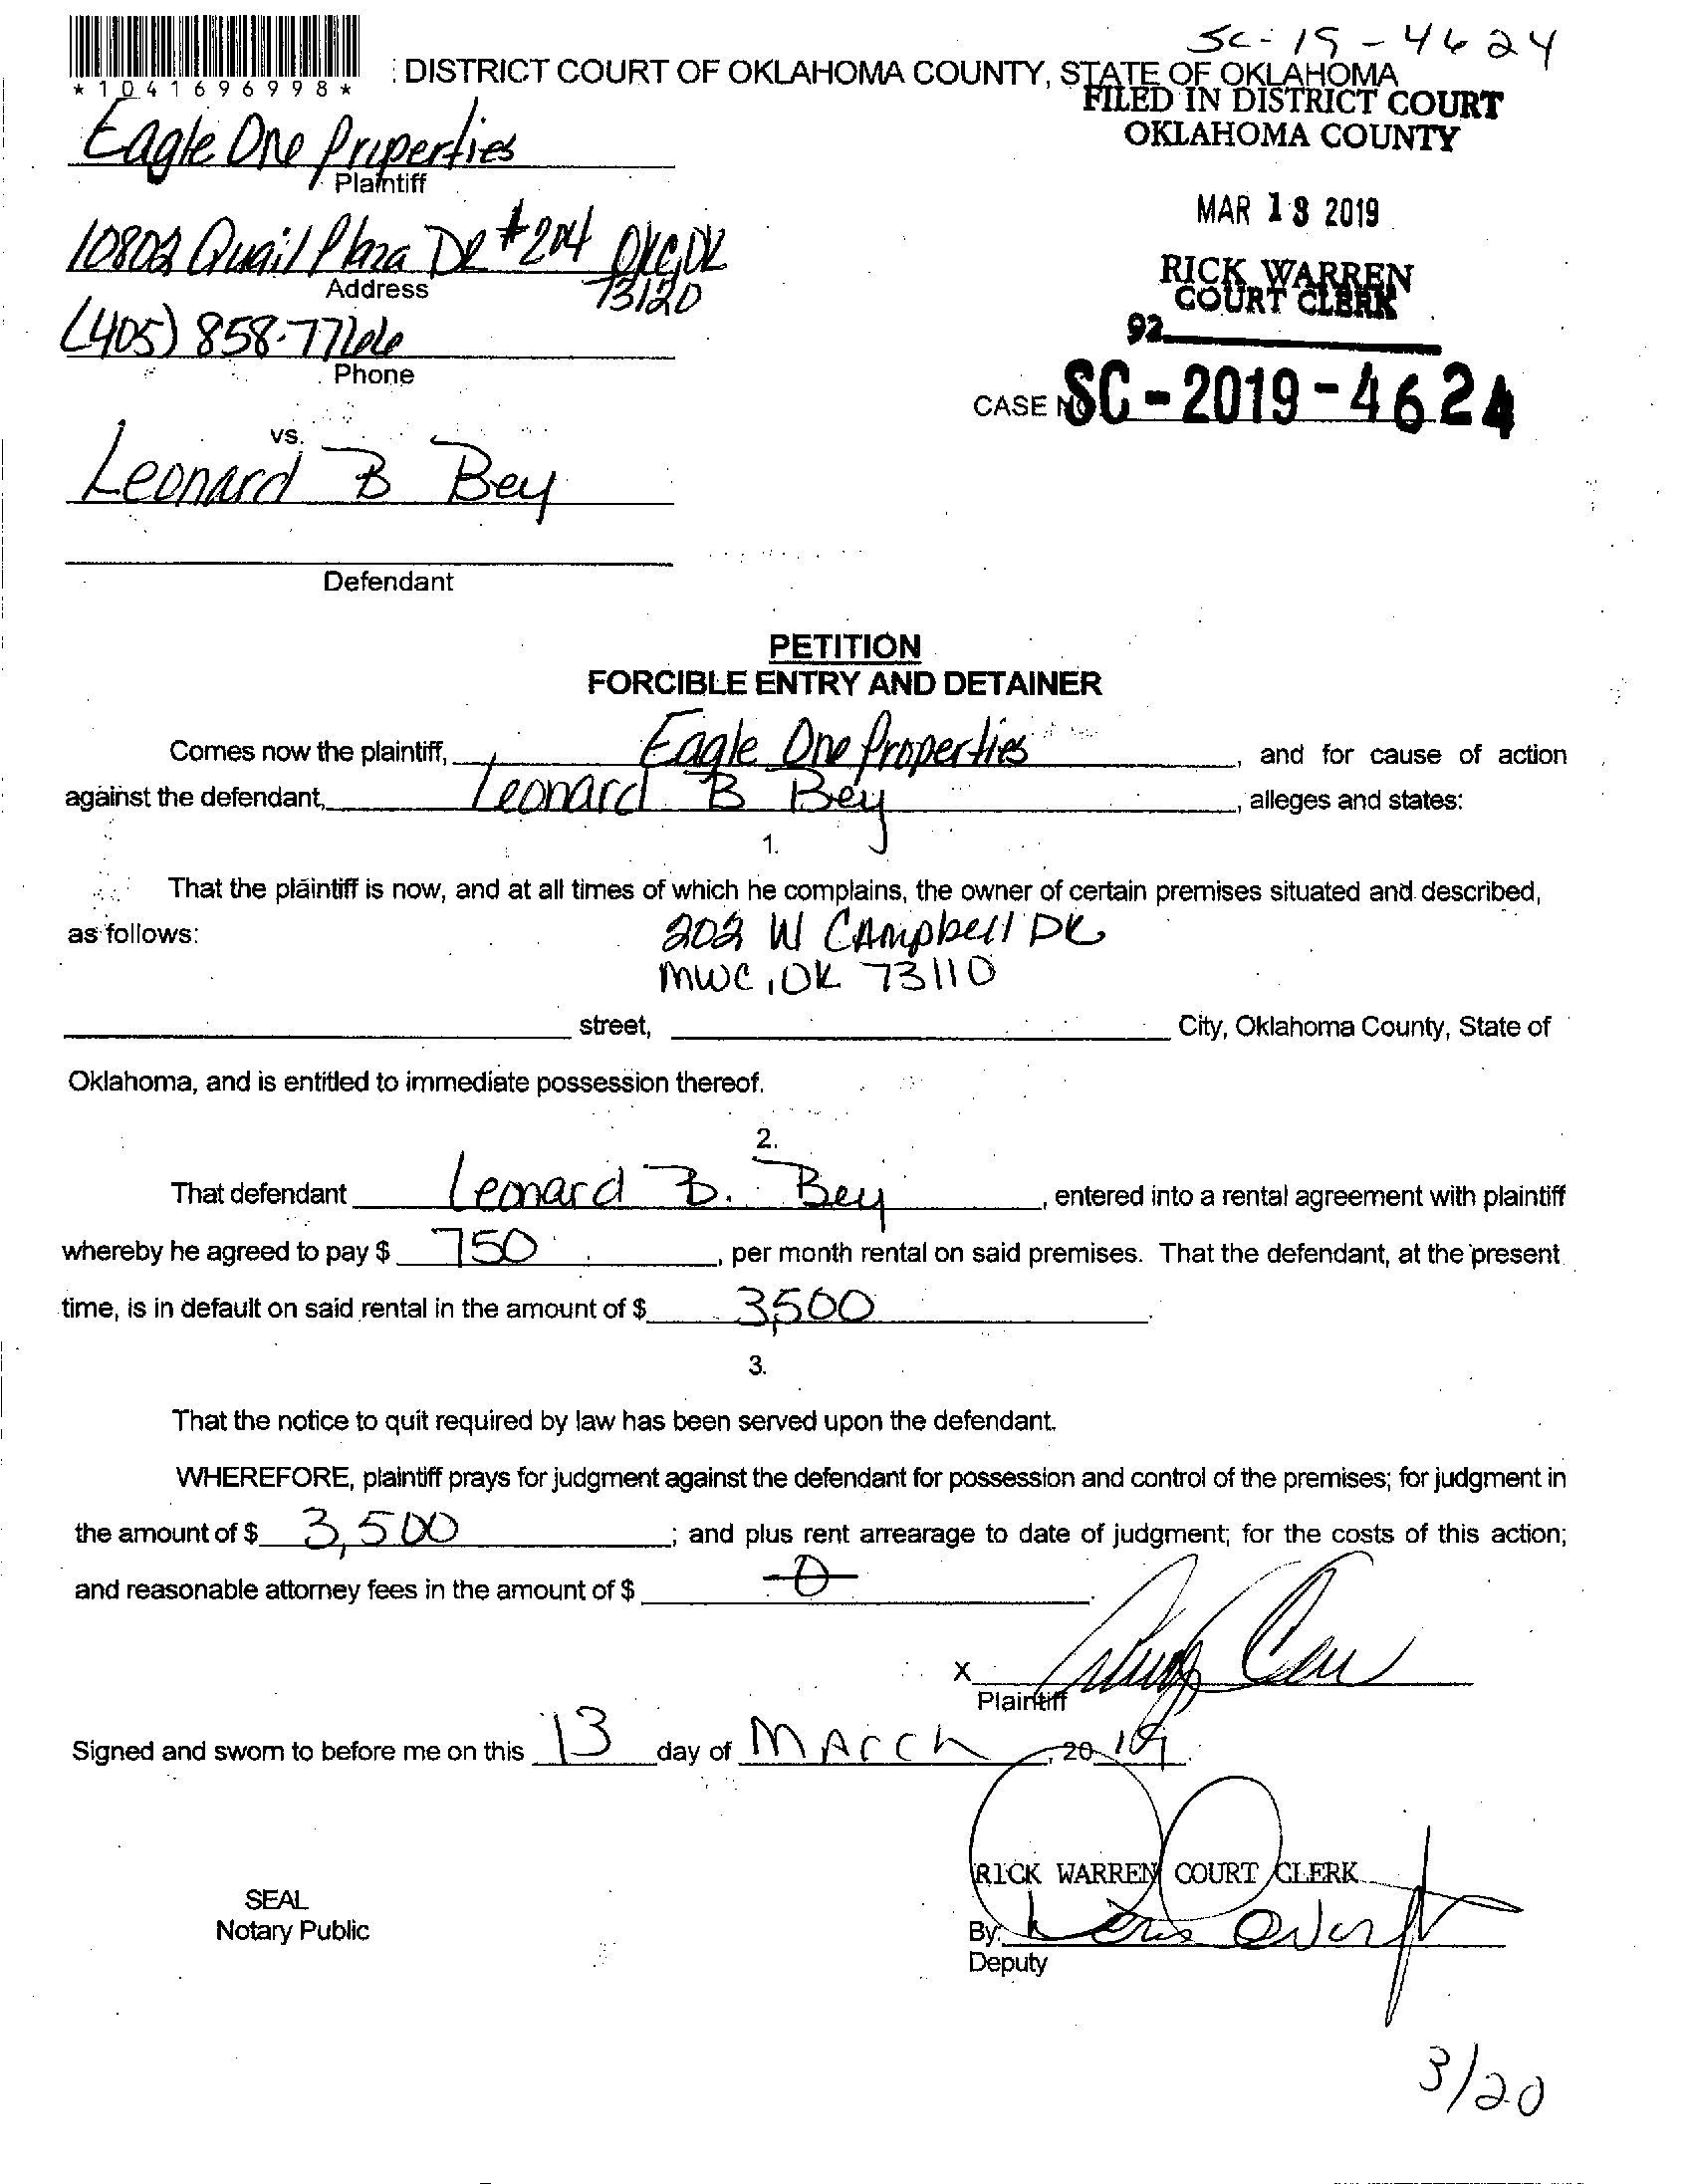 SC-19-4624
*1041696998*
: DISTRICT COURT OF OKLAHOMA COUNTY, STATE OF OKLAHOMA
FILED IN DISTRICT COURT
OKLAHOMA COUNTY
Eagle One Properties
Plaintiff
MAR 13 2019
10802 Quail Plaza DR #204 OKC, OK
73120
Address
RICK WARREN
COURT CLERK
92
(405) 858-7766
Phone
CASE NO SC-2019-4624
vs.
Leonard B Bey
Defendant
PETITION
FORCIBLE ENTRY AND DETAINER
Comes now the plaintiff, Eagle One Properties, and for cause of action
against the defendant, Leonard B Bey, alleges and states:
1.
That the plaintiff is now, and at all times of which he complains, the owner of certain premises situated and described,
as follows: 202 W CAmpbell DR
MWC, OK 73110
street, City, Oklahoma County, State of
Oklahoma, and is entitled to immediate possession thereof.
2.
That defendant Leonard B. Bey, entered into a rental agreement with plaintiff
whereby he agreed to pay $ 750, per month rental on said premises. That the defendant, at the present
time, is in default on said rental in the amount of $ 3,500.
3.
That the notice to quit required by law has been served upon the defendant.
WHEREFORE, plaintiff prays for judgment against the defendant for possession and control of the premises; for judgment in
the amount of $ 3,500; and plus rent arrearage to date of judgment; for the costs of this action;
and reasonable attorney fees in the amount of $ -0-.
X
Plaintiff
Signed and sworn to before me on this 13 day of MArch, 20 19.
RICK WARREN COURT CLERK
SEAL
Notary Public
By:
Deputy
3/20